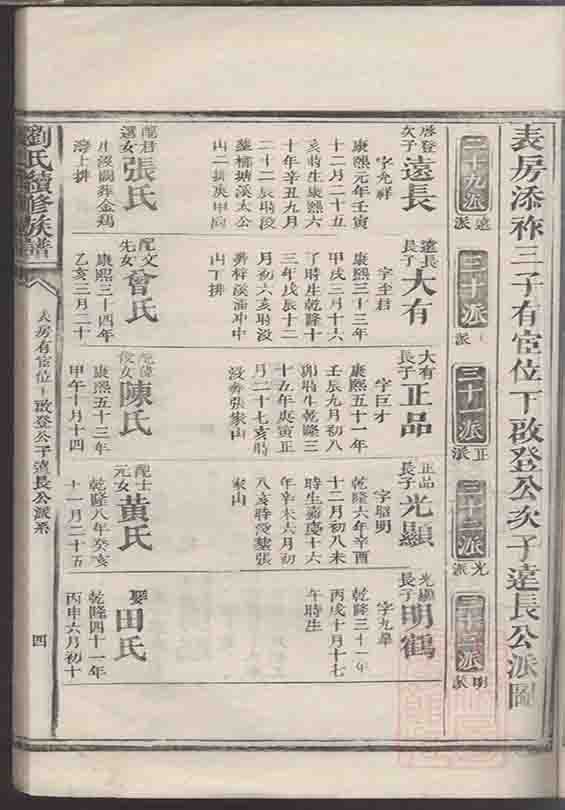 表房添祚三子有宦位下啟登公次子遠長公派圖
二十九派
遠派
三十派
派
三十派
正派
三十二派
光派
三十三派
明派
啓登次子
遠長
字允祥
康熙元年壬寅
十二月二十五
亥時生康熙六
十年辛丑九月
二十二辰時沒
山二排
選女
張氏
生沒闕葬金鷄
灣上排
遠長長子
大有
字聖君
康熙三十三年
甲戌三月十六
丁時生乾隆十
三年戊辰十二
月初六亥時沒
山丁排
配文先女
曾氏
康熙三十四年
乙亥二月二十
大有長子
正品
字巨才
康熙五十一年
壬辰九月初八
卯時生乾隆三
十五年庚寅正
月二十七亥時
沒葬張家山
俊女
陳氏
康熙五十三年
甲午十月十四
正品長子
光顯
字
乾隆六年辛酉
十二月初八未
時生嘉慶十六
年辛未六月初
八亥時沒葬張
家山
配士元女
黃氏
乾隆八年癸亥
十一月二十五
光顯長子
明鶴
字九臯
乾隆三十一年
丙戌十月十七
午時生
娶
田氏
乾隆四十一年
丙申六月初十
劉氏續修族譜
表房有宦位下啟登公子遠長公派系
四